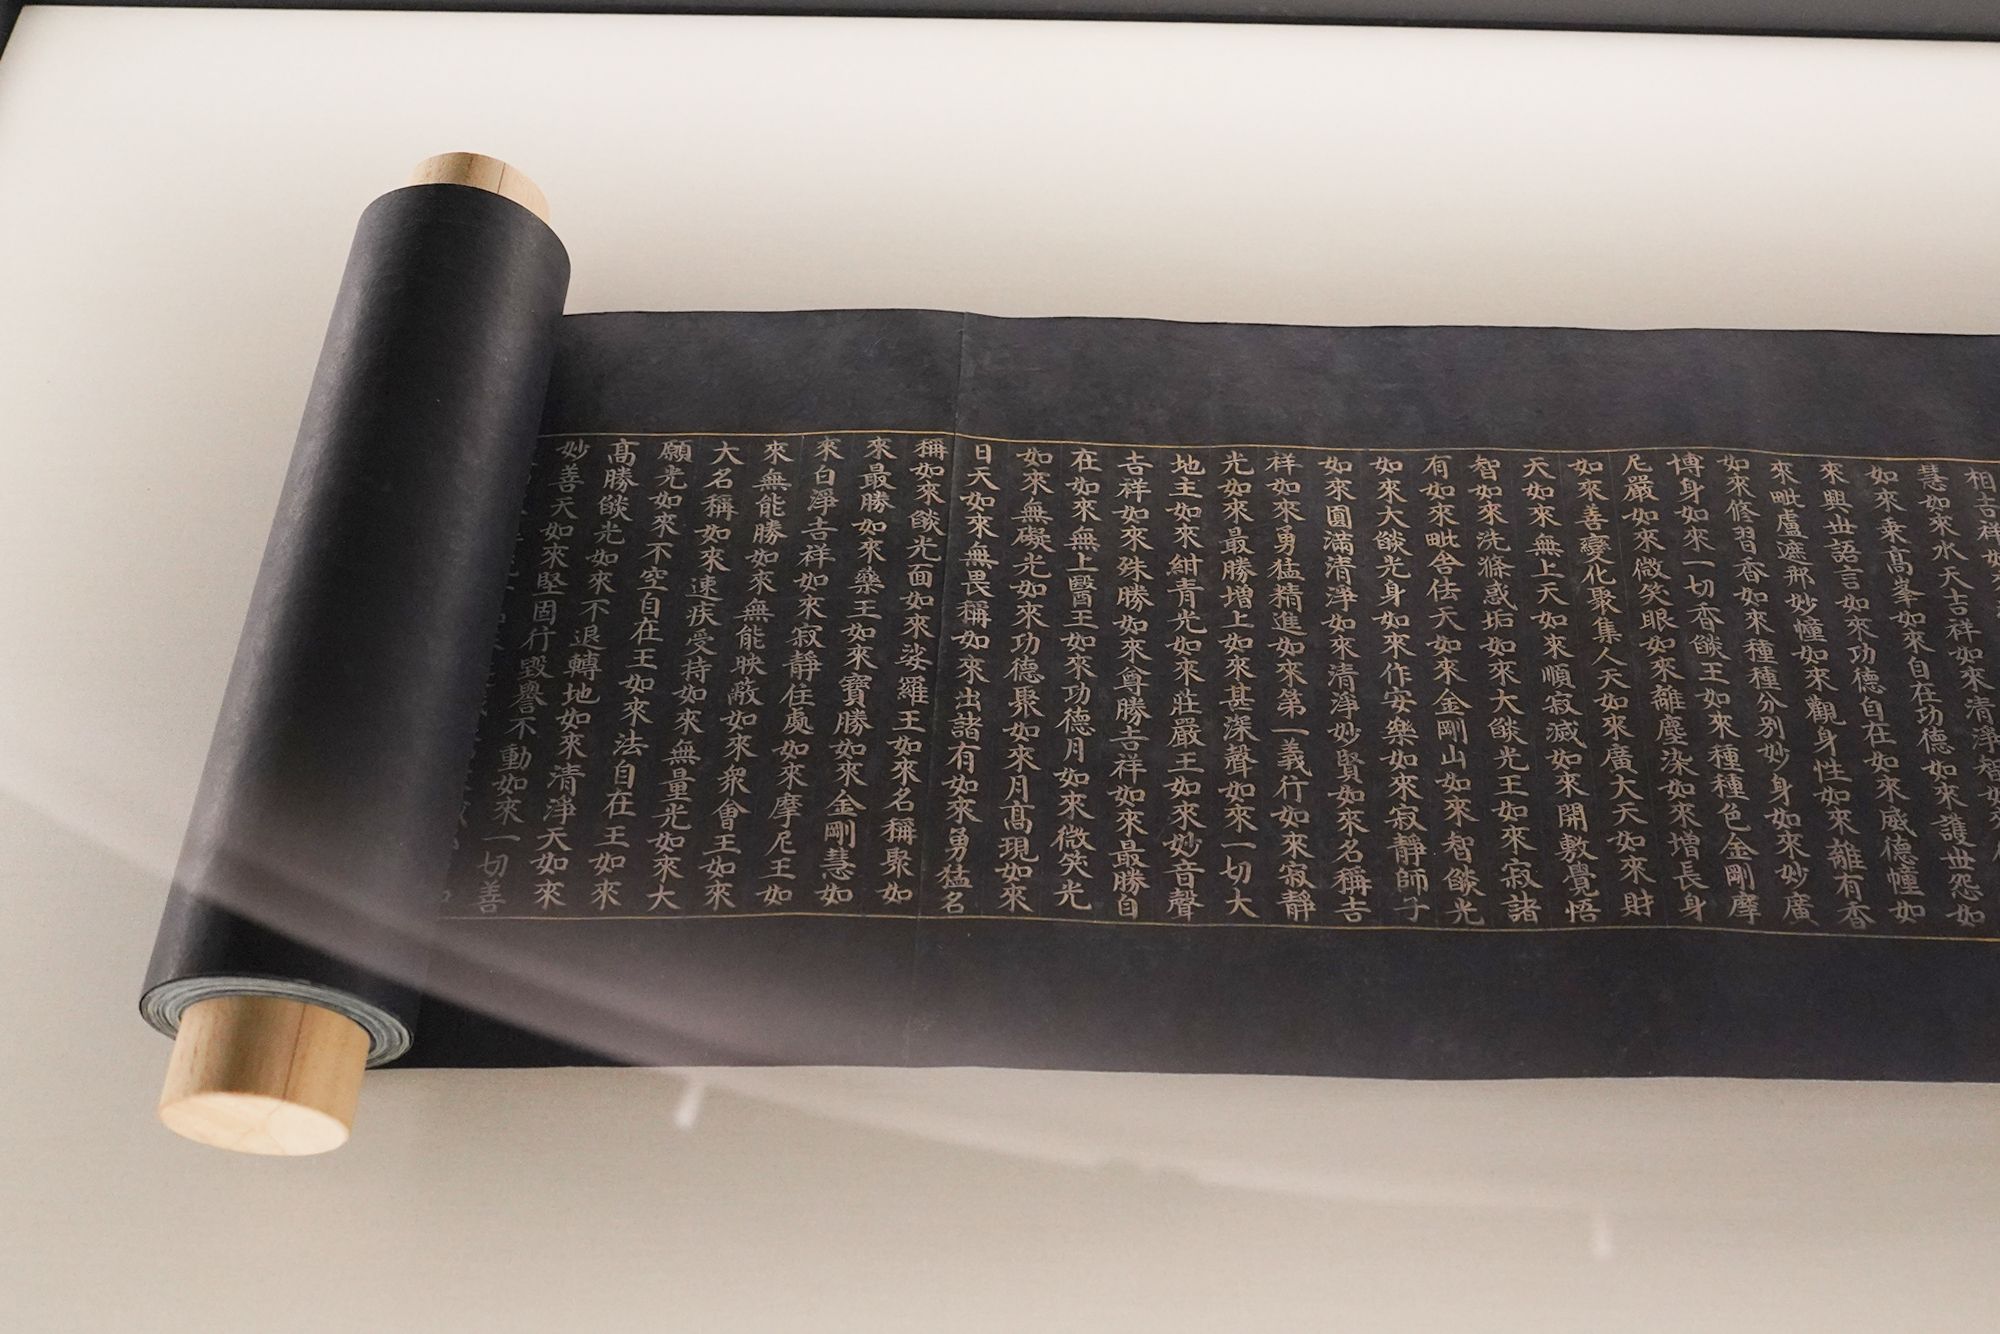 相吉祥如來
慧如來水天吉祥如來清淨
如來乗髙峯如來自在功德如來護世怨如
來興世語言如來功德自在如來威德幢如
來毗盧遮那妙幢如來觀身性如來離有香
如來修習香如來種種分別妙身如來妙廣
博身如來一切香𦦨王如來種種色金剛摩
尼嚴如來微笑眼如來離塵染如來增長身
如來善變化聚集人天如來廣大天如來財
天如來無上天如來順寂滅如來開敷覺悟
智如來洗滌惑垢如來大𦦨光王如來寂諸
有如來毗舍佉天如來金剛山如來智𦦨光
如來大𦦨光身如來作安樂如來寂靜師子
如來圓滿清淨如來清淨妙賢如來名稱吉
祥如來勇猛精進如來第一義行如來寂靜
光如來最勝增上如來甚深聲如來一切大
地主如來紺青光如來莊嚴王如來妙音聲
吉祥如來殊勝如來尊勝吉祥如來最勝自
在如來無上醫王如來功德月如來微笑光
如來無礙光如來功德聚如來月髙現如來
日天如來無畏稱如來出諸有如來勇猛名
稱如來𦦨光面如來娑羅王如來名稱聚如
來最勝如來藥王如來寶勝如來金剛慧如
來白淨吉祥如來寂靜住處如來摩尼王如
來無能勝如來無能映蔽如來衆會王如來
大名稱如來速疾受持如來無量光如來大
願光如來不空自在王如來法自在王如來
髙勝𦦨光如來不退轉地如來清淨天如來
妙善天如來堅固行如來
毀譽不動如來一切善